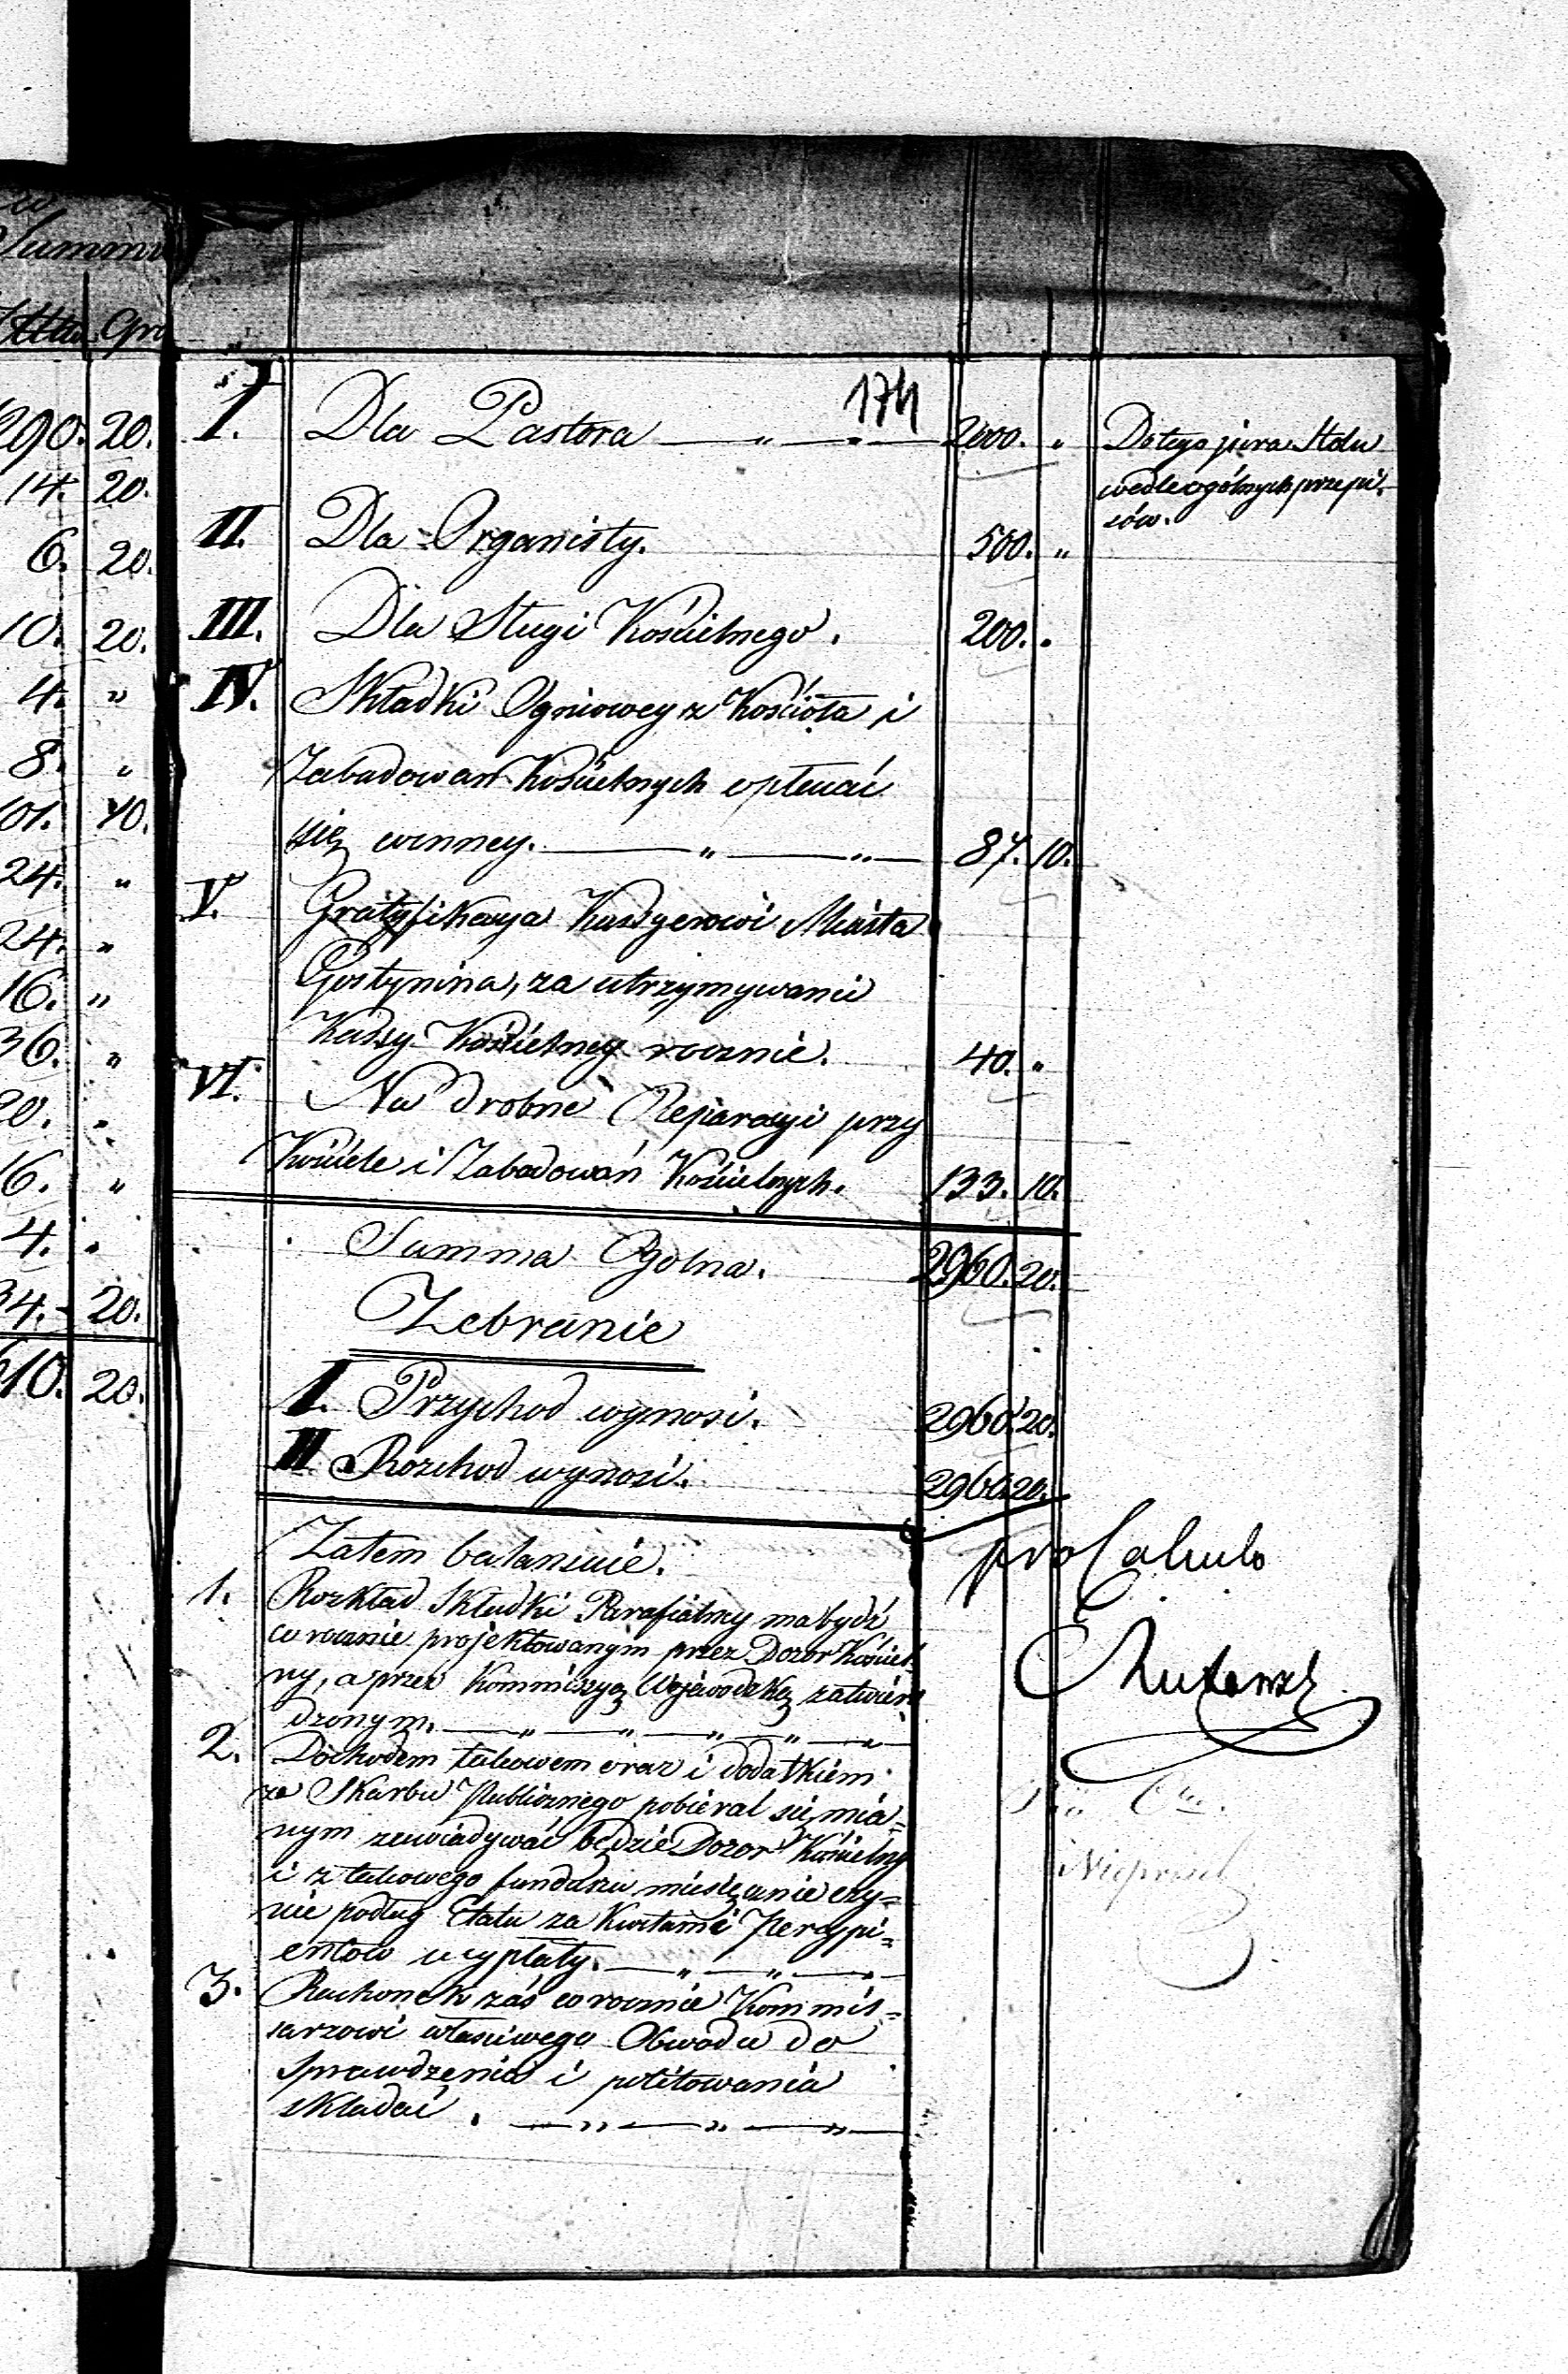 Summ
Gro
290. 20.
14. 20.
6. 20.
10. 20.
4. "
8. "
101. 10.
24. "
24. "
16. "
36. "
20. "
16. "
4. "
34. 20.
610. 20.
174
I. Dla Pastora — " — " — 2000. " Do tego jura Stolæ
wedle ogólnych przepi-
sów.
II. Dla Organisty. 500. "
III. Dla Sługi Kościelnego. 200. "
IV. Składki Ogniowey z Kościoła i
Zabudowań Kościelnych opłacać
się winney. — " — " — 87. 10.
V. Gratyfikacya Kassyerowi Miasta
Gostynina, za utrzymywanie
Kassy Kościelney rocznie. 40. "
VI. Na drobne Reparacyi przy
Kościele i Zabudowań Kościelnych. 133. 10.
Summa Ogolna. 2960. 20.
Zebranie
I. Przychod wynosi. 2960. 20.
II. Rozchod wynosi. 2960. 20.
Zatem balansuie.
pro Calculo
1. Rozkład Składki Parafialney ma bydź
co rocznie projektowanym przez Dozor Kościel-
ny, a przez Kommissyę Wojewodzką zatwier-
dzonym. — " — " — " — " — " —
2. Dochodem takowem oraz i dodatkiem
ze Skarbu Publicznego pobierać się mia=
nym zawiadywać będzie Dozor Kościelny
i z takowego funduszu miesięcznie czy=
nić podług Etatu za Kwitami Percypi=
entow wypłaty. — " — " — " —
3. Rachonek zaś co rocznie Kommis=
sarzowi właściwego Obwodu do
sprawdzenia i
składać. — " — " — " —